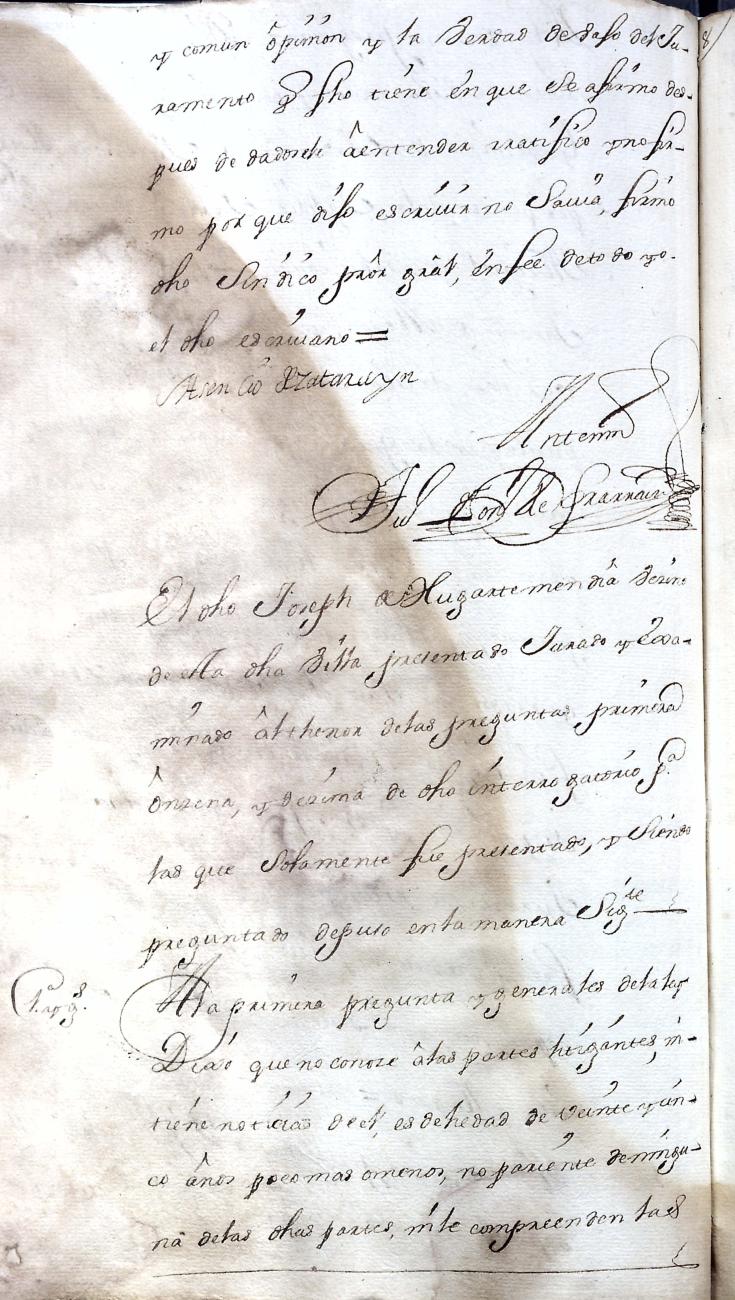 8
y comun opinion y la Verdad devaso del Ju-
ramento q̃ fho tiene en que se afirmo des-
pues de dadosele âentender rratifico y no fir-
mo por que dijo escriuir no Sauia, firmo
dho Sindico pror gral, en fee de todo yo
el dho escriuano =
Asencio de Zatarayn
Antemi
El dho Joseph de Hugartemendia Vezino
de esta dha Villa presentado Jurado y Exsa-
minado âl thenor delas preguntas primera
onzena, y dezima de dho interrogatorio pa
las que solamente fue presentado, y Siendo
preguntado depuso en la manera Sigte
1a y gs.
A la primera pregunta y generales dela ley
Dixo que no conoze âlas partes litigantes, ni
tiene noticias de el, es de hedad de Veinte y cin-
co años poco mas omenos, no pariente de ningu-
na delas dhas partes, ni le compreenden las